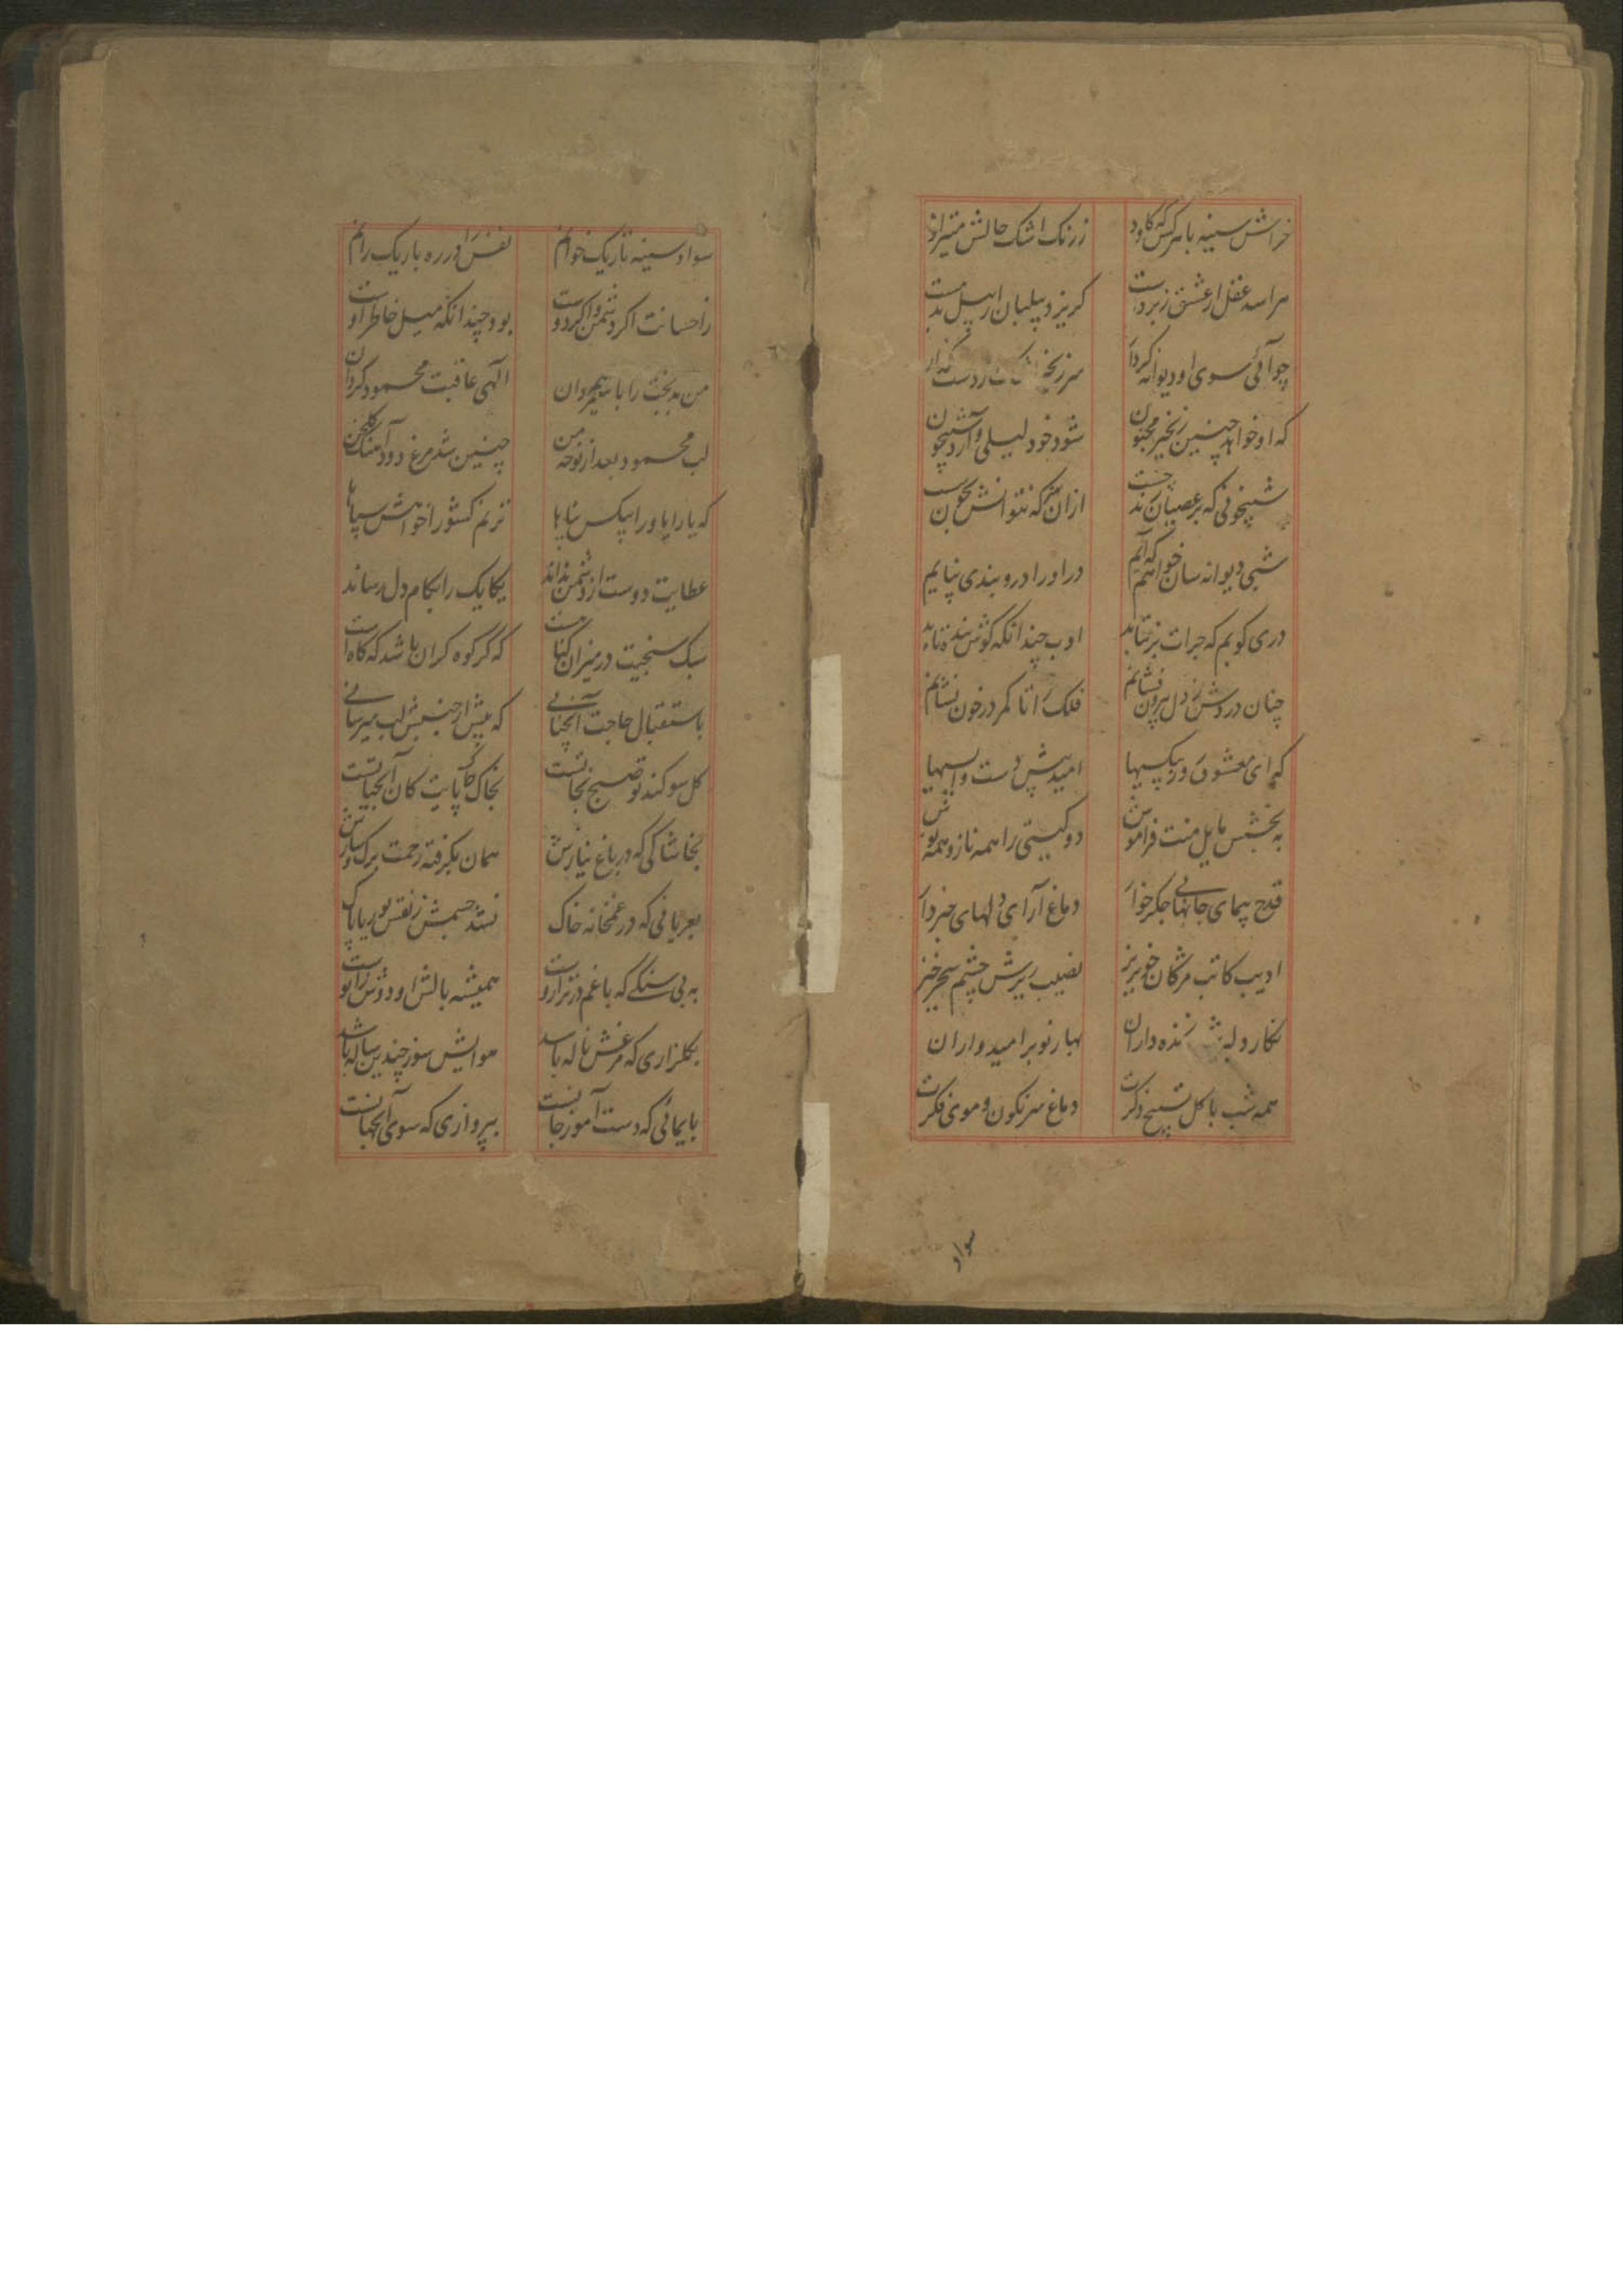 خراش سینه با هرکس که کاود ز رنک اشک حالش میتراود
هراسد عقل از عشق زبردست کریزد پیلبان از پیل بدمست
چو آئی سوی او دیوانه کردار سر زنجیر دست
که او خواهد چنین زنجیر مجنون شود خود لیلی و آرد شبیخون
شبیخونی که بر عصیان زند ازان
شبی دیوانه سان خواهم که آیم در او را در و بندی نپایم
دری کوبم که جرات برنتابد ادب چندانکه کوشد
چنان در دوش از دل برون فشانم فلک را تا کمر در خون نشانم
که ای معشوق در بیکسیها امید پیش دست واپسیها
به بخشش مایل منت فراموش دو کیتی را همه ناز و همه نوش
قدح پیمای جانهای جکرخوار دماغ آرای دلهای خبردار
ادیب کاتب مژکان خونریز نصیب ریزش چشم سحرخیز
نکار دلبر زنده داران بهار نوبر امیدواران
همه شب با کل تسبیح ذکرت دماغ سرنکون و موی فکرت
سواد
سواد سینه تاریک خوانم نفس را در ره باریک رانم
ز احسانت اکر دشمن و اکر دوست بود چندانکه میل خاطر اوست
من بدبخت را با شیرمردان الهی عاقبت محمود کردان
لب محمود بعد از نوحه من چنین شد مرغ دودآهنک کلخن
که یا رایا ورا بیکس پناها ترنم کشورا خواهش سپاها
عطایت دوست از دشمن نداند یکایک را بکام دل رساند
سبک سنجیت در میزان کناهست که کر کوه کران باشد که کاهست
باستقبال حاجت آنچنانی که پیش از جنبش لب میرسانی
کل سوکند تو صبح نجاتست بخاک پایت کان آب حیاتست
بخاشاکی که در باغ نیازش همان بکرفته رحمت برک و سازش
بعریانی که در غمخانه خاک نشد جسمش ز نقش بوریا پاک
به بی سنکی که با غم در ترازوست همیشه بالش او دوش زانوست
بکلزاری که مرغش ناله باشد هوایش سوز چندین ساله باشد
بایمائی که دست آموز جانست بپروازی که سوی آنجهانست